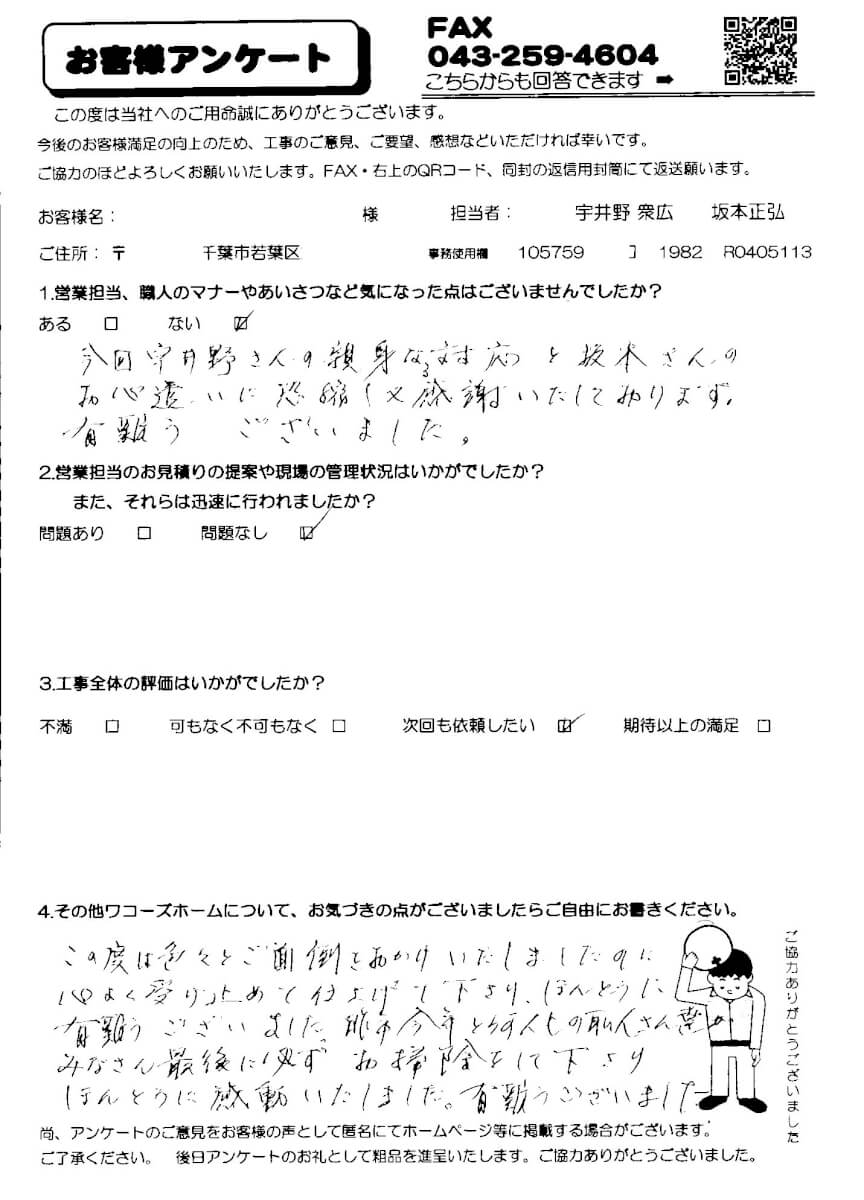 お客様アンケート
FAX
043-259-4604
こちらからも回答できます ➡
この度は当社へのご用命誠にありがとうございます。
今後のお客様満足の向上のため、工事のご意見、ご要望、感想などいただければ幸いです。
ご協力のほどよろしくお願いいたします。FAX・右上のQRコード、同封の返信用封筒にて返送願います。
お客様名： 様 担当者： 宇井野 衆広 坂本正弘
ご住所：〒 千葉市若葉区 事務使用欄 105759 1982 R0405113
1.営業担当、職人のマナーやあいさつなど気になった点はございませんでしたか？
ある □ ない ☑
今回宇井野さんの親身なる対応と坂本さんの
お心遣いに恐縮し又感謝いたしております。
有難う ございました。
2.営業担当のお見積りの提案や現場の管理状況はいかがでしたか？
また、それらは迅速に行われましたか？
問題あり □ 問題なし ☑
3.工事全体の評価はいかがでしたか？
不満 □ 可もなく不可もなく □ 次回も依頼したい ☑ 期待以上の満足 □
4.その他ワコーズホームについて、お気づきの点がございましたらご自由にお書きください。
この度は色々とご面倒をおかけいたしましたのに
心よく受け止めて仕上げて下さり、ほんとうに
有難うございました。昨年今年と 職人さん達が
みなさん最後に必ずお掃除をして下さり
ほんとうに感動いたしました。有難うございました
ご協力ありがとうございました
尚、アンケートのご意見をお客様の声として匿名にてホームページ等に掲載する場合がございます。
ご了承ください。 後日アンケートのお礼として粗品を進呈いたします。ご協力ありがとうございました。